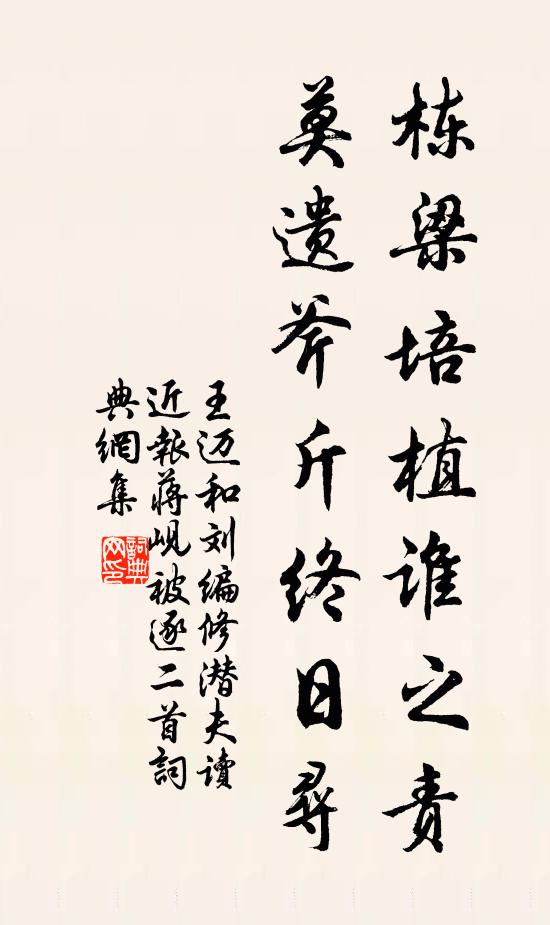 栋梁培植谁之责
莫遗斧斤终日寻
王迈和刘编修潜夫读
近报蒋岘被逐二首詞
典網集
詞典
网印